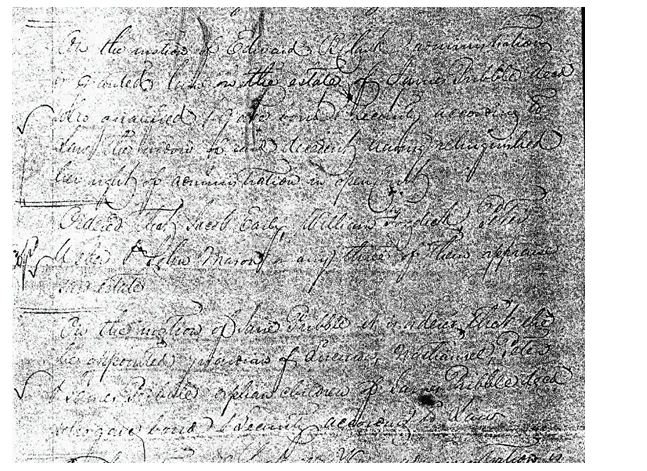 On the motion of Edward administration
is granted him on the estate of James Pribble decd
who qualified & gave bond & security according to
law the widow of said decedent having relinquished
her right of administration in open
Ordered that Jacob Early, William Peter
& John Mason or any three of them appraise
said estate
On the motion of Jane Pribble it is ordered that she
be appointed guardian of Nathaniel Peter
& James Pribble orphan children of James Pribble decd
who gave bond & security according to Law